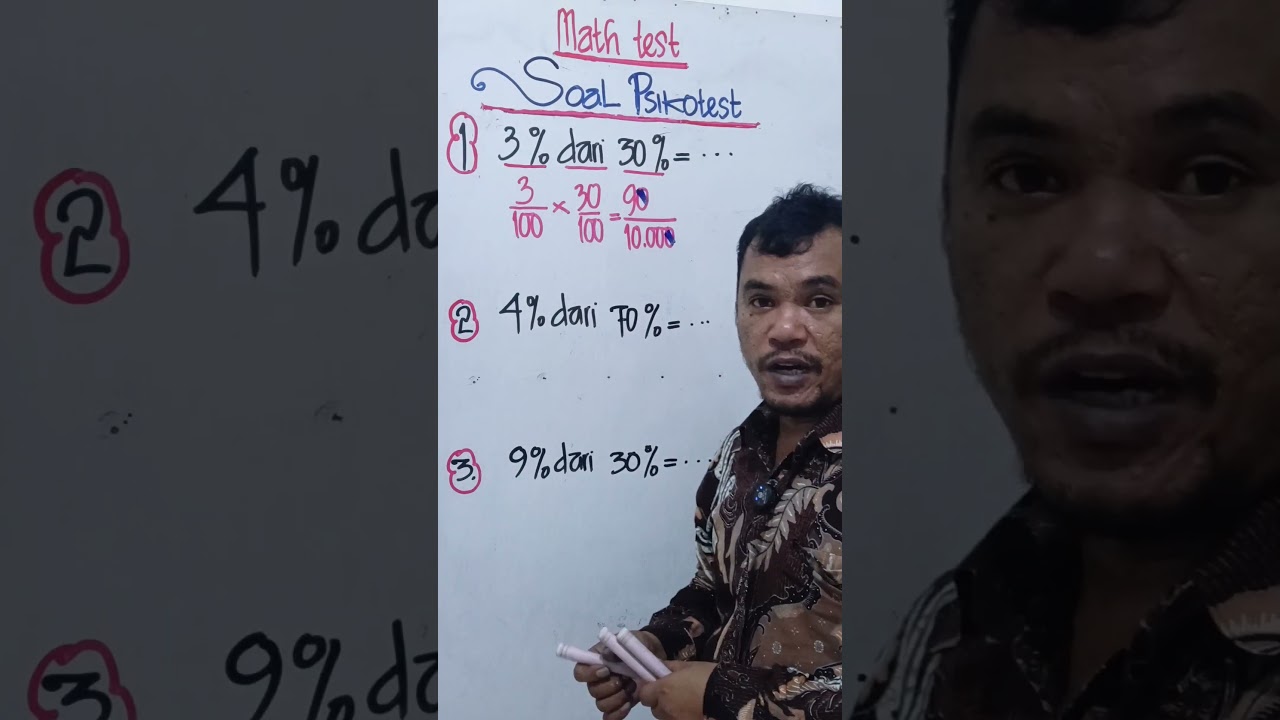 Math test
Soal Psikotest
1 3% dari 30% = ...
3/100 × 30/100 = 90/10.000
2 4% dari 70% = ...
3. 9% dari 30% = ...
2 4% da
3 9% da